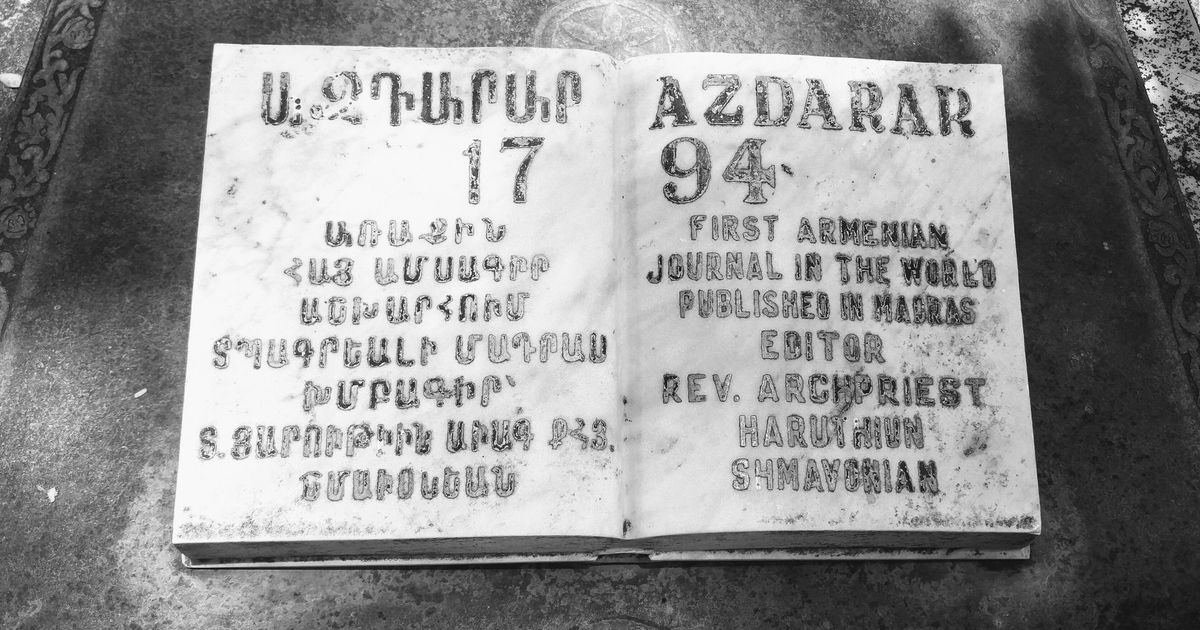 ԱԶԴԱՐԱՐ
17
ԱՌԱՋԻՆ
ՀԱՅ ԱՄՍԱԳԻՐ
ԱՇԽԱՐՀՈՒՄ
ՏՊԱԳՐԵԱԼԻ ՄԱԴՐԱՍ
ԽՄԲԱԳԻՐ՝
Տ. ՅԱՐՈՒԹԻՒՆ ԱՒԱԳ ՔՀՅ.
ՇՄԱՒՕՆԵԱՆ
AZDARAR
94
FIRST ARMENIAN
JOURNAL IN THE WORLD
PUBLISHED IN MADRAS
EDITOR
REV. ARCHPRIEST
HARUTHIUN
SHMAVONIAN